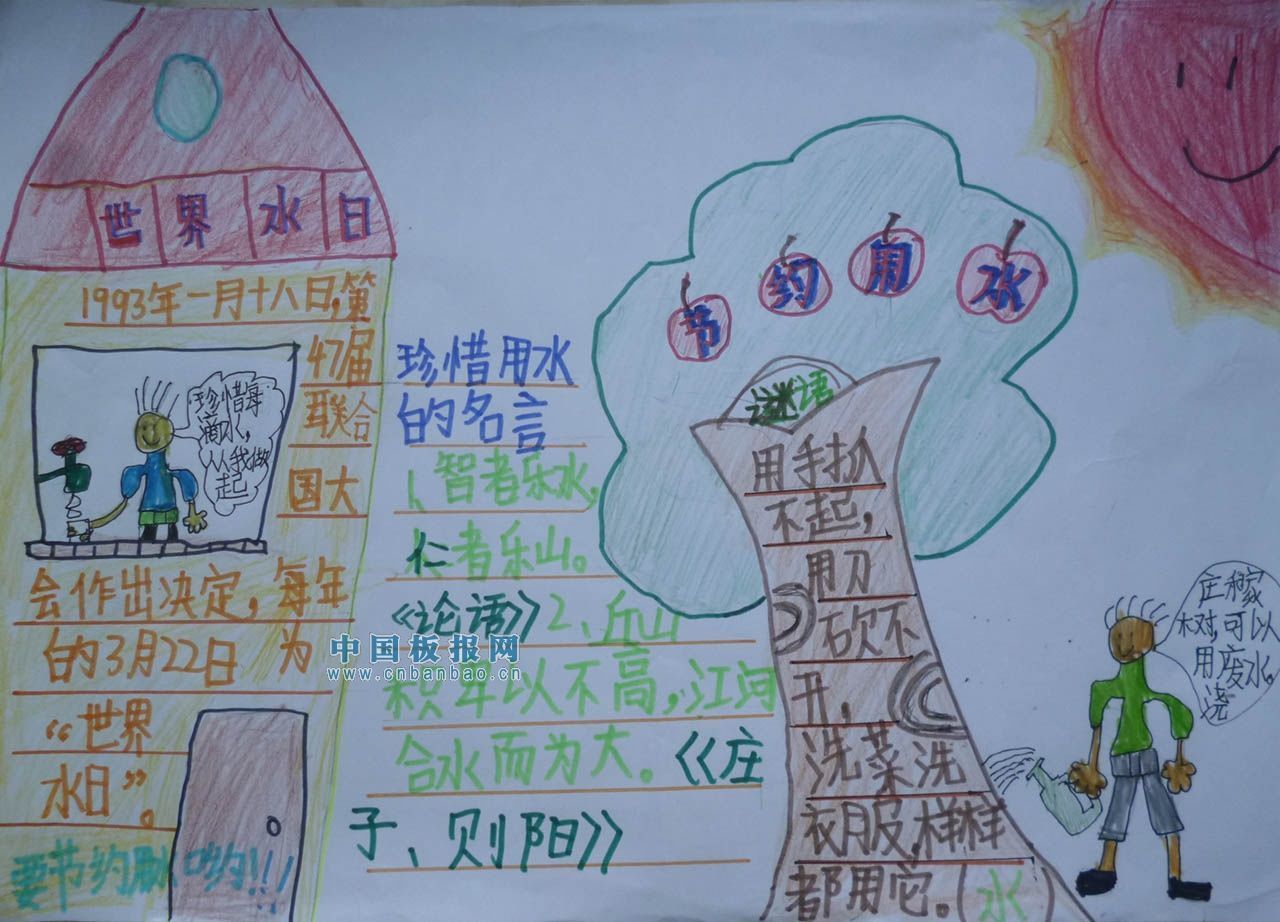 世界水日
1993年一月十八日,第
47届
联合
国大
会作出决定,每年
的3月22日为
“世界
水日”。
珍惜每
滴水,
从我做
起
珍惜用水
的名言
1、智者乐水,
仁者乐山。
《论语》2、丘山
积卑以不高,江河
合水而为大。《庄
子、则阳》
要节约
!!!
中国板报网
www.cnbanbao.cn
节约用水
谜语
用手抓
不起,
用刀
砍不
开,
洗菜洗
衣服,样样
都用它。(水)
庄稼
树,可以
用废水。
浇